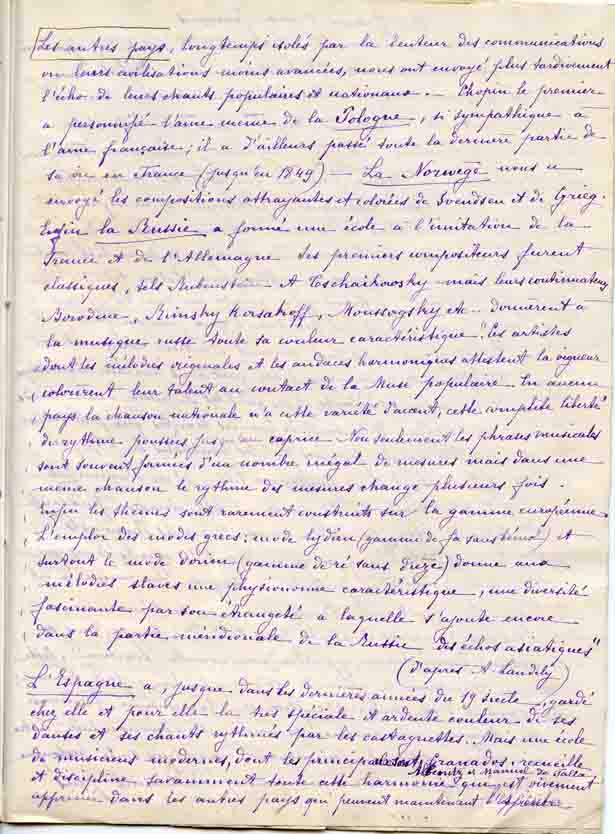 Les autres pays, longtemps isolés par la lenteur des communications
ou leurs civilisations moins avancées, nous ont envoyé plus tardivement
l'écho de leurs chants populaires et nationaux. — Chopin le premier
a personnifié l'âme même de la Pologne, si sympathique à
l'âme française; il a d'ailleurs passé toute la dernière partie de
sa vie en France (jusqu'en 1849) — La Norwège nous a
envoyé les compositions attrayantes et colorées de Svendsen et de Grieg.
Enfin la Russie a formé une école à l'imitation de la
France et de l'Allemagne Ses premiers compositeurs furent
classiques, tels Rubinstein et Tschaïkowsky mais leurs continuateurs
Borodine, Rimsky Korsakoff, Moussogsky etc donnèrent à
la musique russe toute sa couleur caractéristique. "Ces artistes
dont les mélodies originales et les audaces harmoniques attestent la vigueur
colorèrent leur talent au contact de la Muse populaire. En aucun
pays la chanson nationale n'a cette variété d'accent, cette complète liberté
de rythme poussées jusqu'au caprice Non seulement les phrases musicales
sont souvent formées d'un nombre inégal de mesures mais dans une
même chanson le rythme des mesures change plusieurs fois.
Enfin les thèmes sont rarement construits sur la gamme européenne
L'emploi des modes grecs: mode lydien (gamme de fa sans bémol) et
surtout le mode dorien (gamme de ré sans dièze) donne aux
mélodies slaves une physionomie caractéristique, une diversité
fascinante par son étrangeté à laquelle s'ajoute encore
dans la partie méridionale de la Russie des échos asiatiques"
(d'après A. Landély)
L'Espagne a, jusque dans les dernières années du 19 siècle, gardé
chez elle et pour elle la très spéciale et ardente couleur de ses
danses et ses chants rythmés par les castagnettes. Mais une école
de musiciens modernes, dont les principaux sont Granados, recueille
Albeniz et Manuel de Falla
et discipline savamment toute cette harmonie que est vivement
apprécié dans les autres pays qui peuvent maintenant